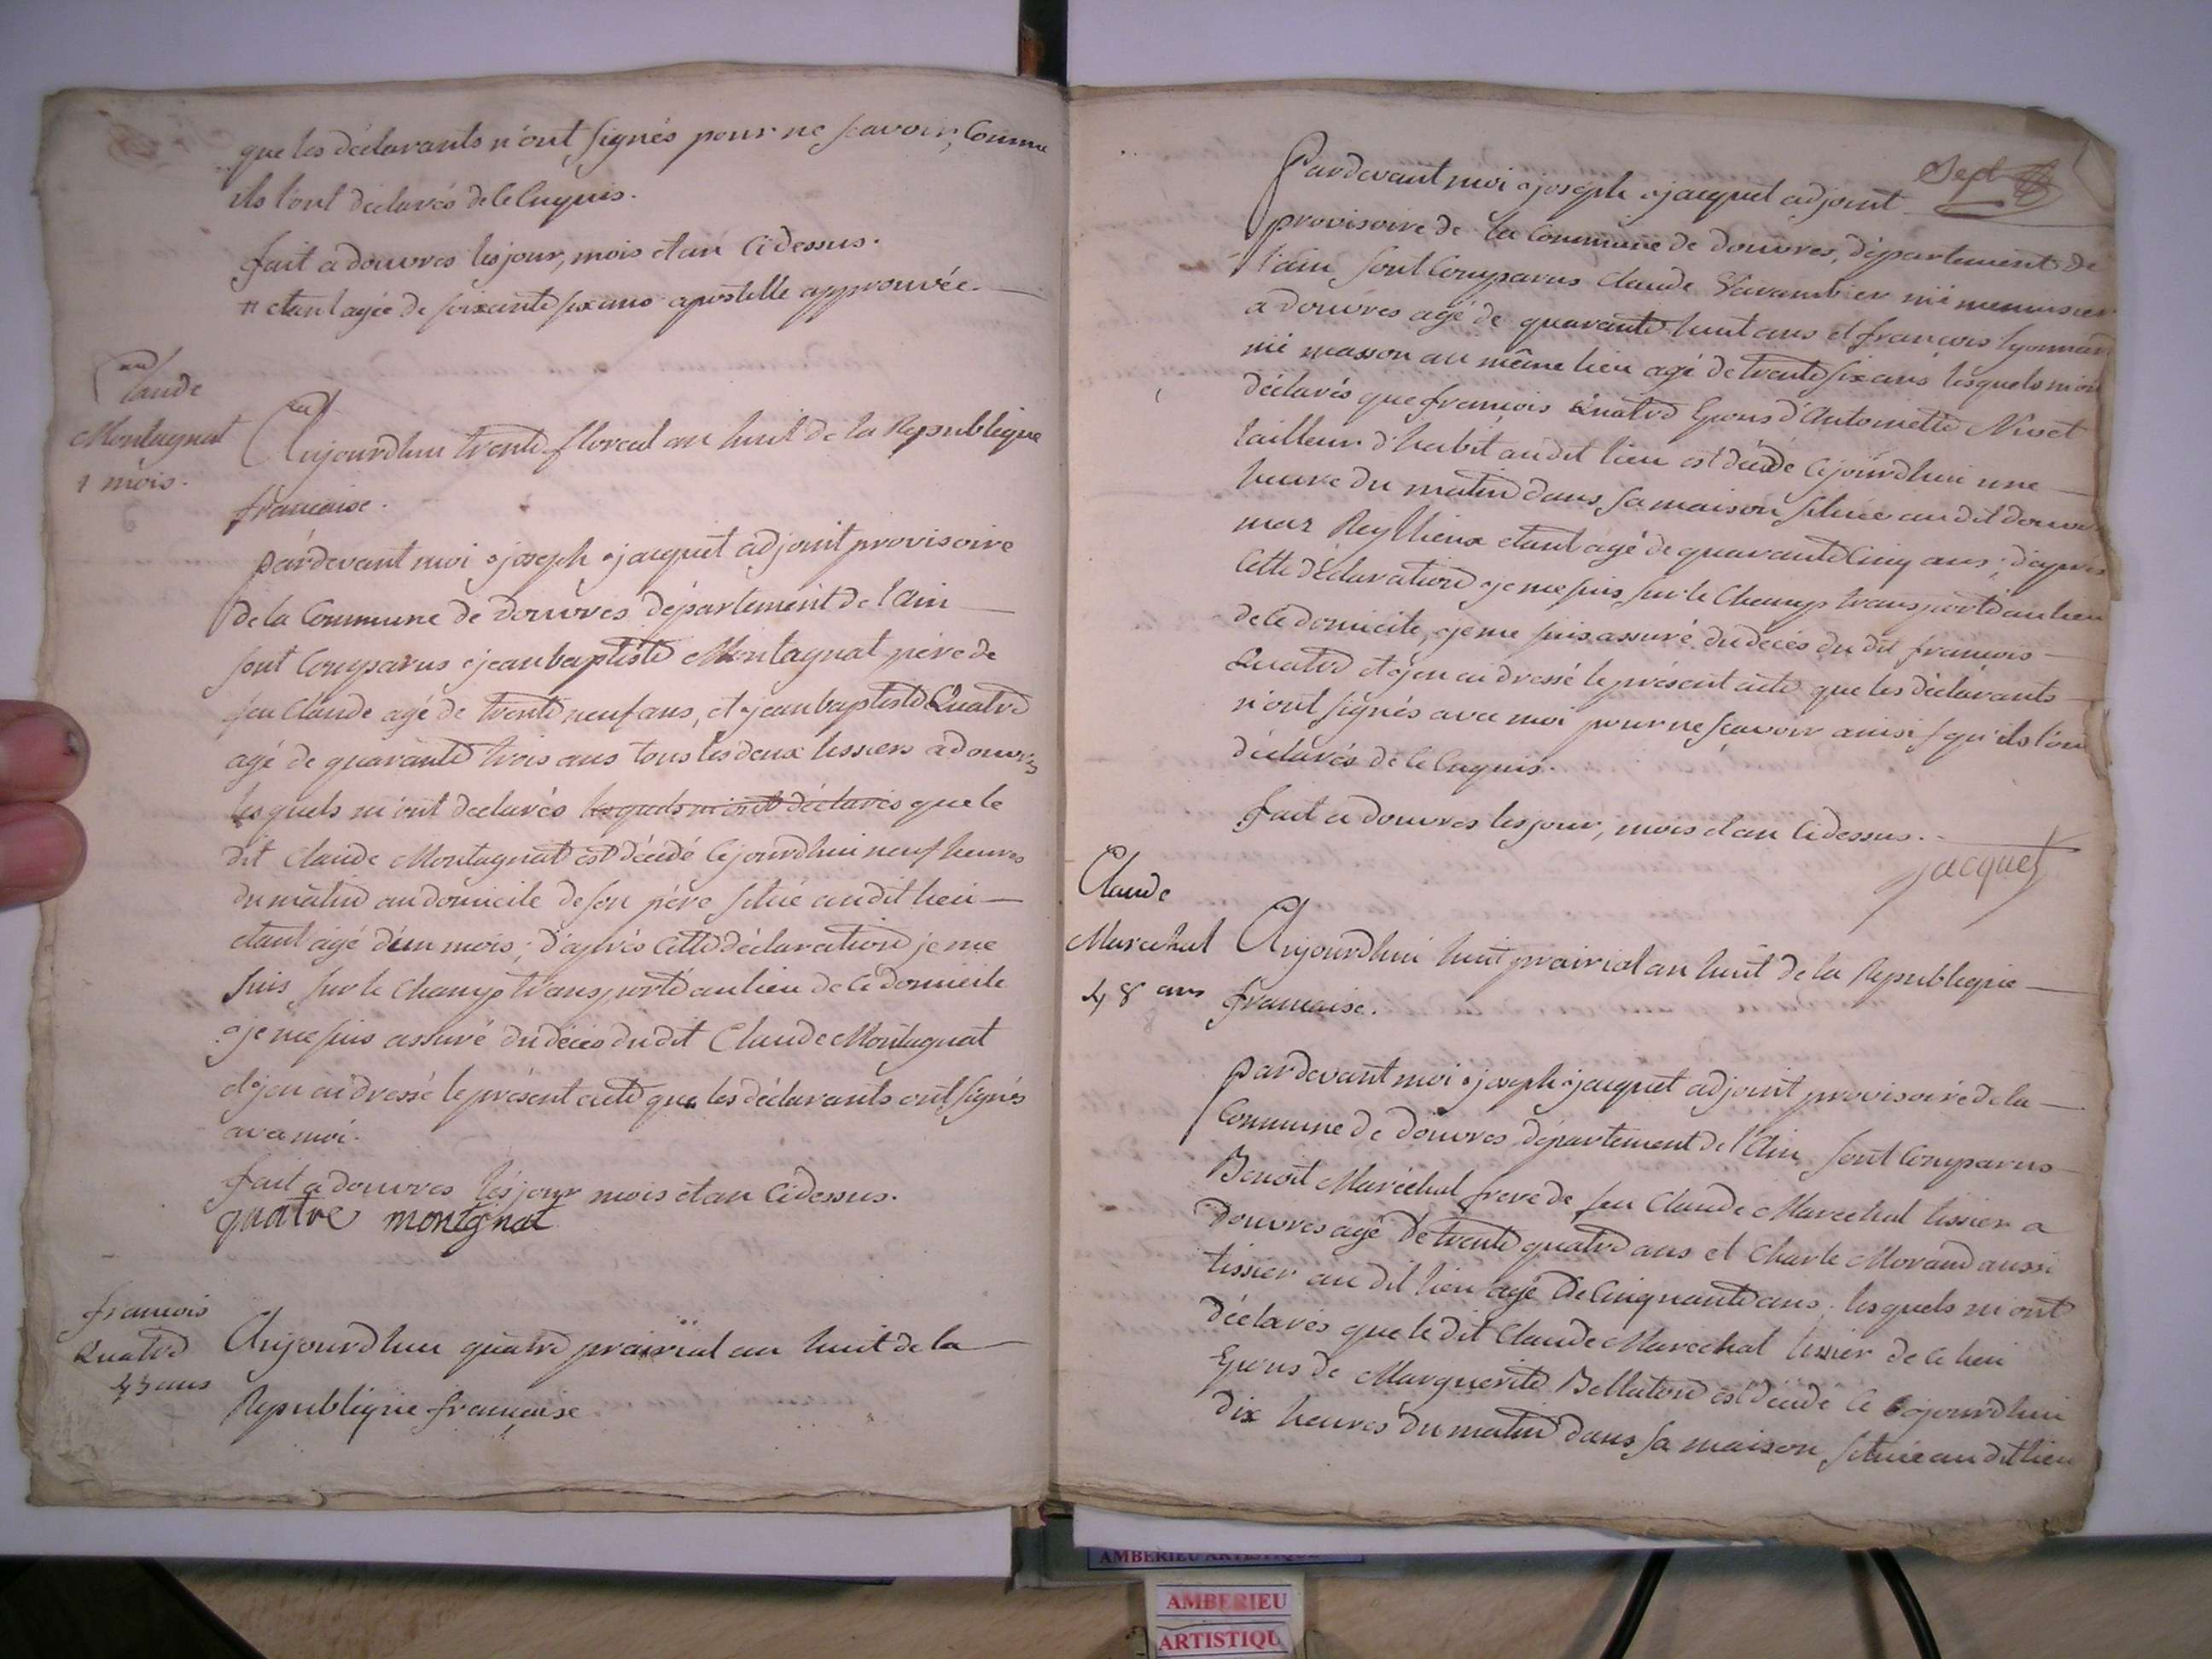 que les déclarants n'ont signés pour ne scavoir, Comme
ils l'ont déclarés de ce Enquis.
fait a douvres les jour, mois et an Cidessus.
# etant agée de soixante six ans apostille approuvée.
Claude
Montagnat
1 mois.
Aujourdhui trente floreal an huit de la Republique
francaise.
pardevant moi joseph jacquet adjoint provisoire
de la Commune de douvres département de l'ain
sont Comparus jean baptiste Montagnat père de
feu Claude agé de trente neuf ans, et jean baptiste Quatre
agé de quarante trois ans tous les deux tissiers a douvres
lesquels m'ont declarés lesquels m'ont déclarés que le
dit Claude Montagnat est décédé Cejourdhui neuf heures
du matin au domicile de son père situé audit lieu
etant agé d'un mois; d'après Cette déclaration je me
suis sur le Champ transporté au lieu de Ce domicile
je me suis assuré du déces du dit Claude Montagnat
et j'en ai dressé le présent acte que les déclarants ont signés
avec moi.
fait a douvres les jour mois et an Cidessus.
quatre montgnat
francois
Quatre
45 ans
Aujourdhui quatre prairial an huit de la
Republique française
Sept
Pardevant moi joseph jacquet adjoint
provisoire de la Commune de douvres, département de
l'ain sont Comparus Claude menuisier
a douvres agé de quarante huit ans et françois Lyonnard
masson au même lieu agé de trente six ans lesquels m'ont
déclarés que françois Quatre Epoux d'Antoinette Nivet
tailleur d'habit audit lieu est décédé Cejourdhui une
heure du matin dans sa maison située au dit douvres
maz Reyllieux etant agé de quarante Cinq ans; d'après
Cette déclaration je me suis sur le Champ transporté au lieu
de Ce domicile, je me suis assuré du décés du dit françois
Quatre et j'en ai dressé le présent acte que les déclarants
n'ont signés avec moi pour ne scavoir ainsi qu'ils l'ont
déclarés de Ce Enquis.
fait a douvres les jour, mois et an Cidessus.
jacquet
Claude
Marechal
48 ans
Aujourdhui huit prairial an huit de la Republique
francaise.
pardevant moi joseph jacquet adjoint provisoire de la
Commune de douvres département de l'Ain, sont Comparus
Benoit Maréchal frere de feu Claude Marechal tissier a
douvres agé de trente quatre ans et Charle Morand aussi
tissier au dit lieu agé de Cinquante ans. lesquels m'ont
déclarés que le dit Claude Marechal tissier de Ce lieu
Epoux de Marguerite Bellaton est décédé Ce jourdhui
dix heures du matin dans sa maison située au dit lieu
AMBERIEU ARTISTIQUE
AMBERIEU
ARTISTIQU